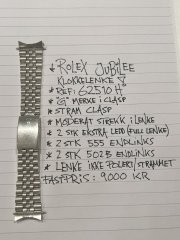 * ROLEX JUBILEE
KLOKKELENKE
* REF: 62510 H
* "G" MERKE I CLASP
* STRAM CLASP
* MODERAT STREKK I LENKE
* 2 STK EKSTRA LEDD (FULL LENKE)
* 2 STK 555 ENDLINKS
* 2 STK 502B ENDLINKS
* LENKE IKKE POLERT/STRAMMET
FASTPRIS: 9000 KR